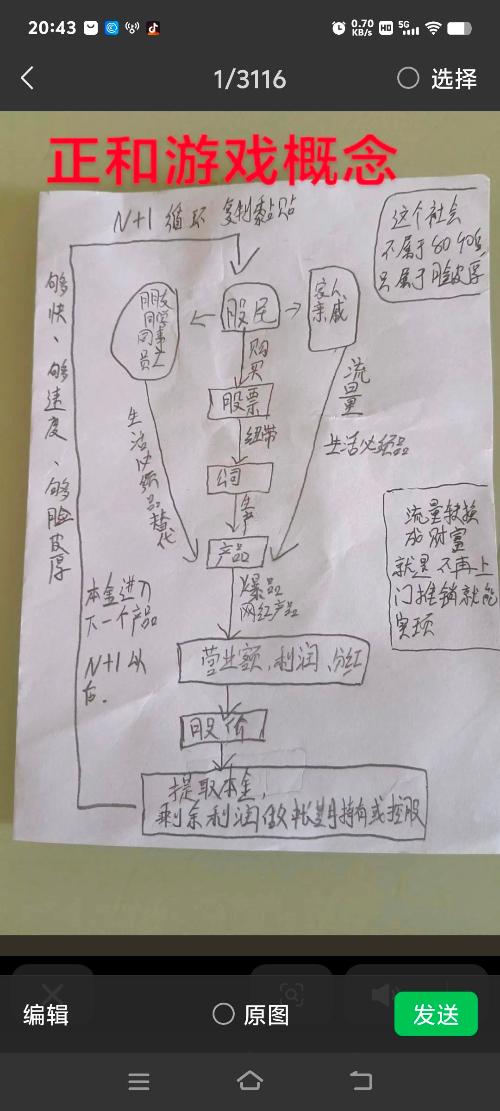 20:43
0.70
KB/s
HD
5G
1/3116
选择
正和游戏概念
N+1 循环 复制黏贴
这个社会
不属于80 90后
只属于脸皮厚
够快、够速度、够脸皮厚
朋友
同学
同事
股民
家人
亲戚
购买
流量
股票
纽带
生活必须品替代
生活必须品
公司
生产
产品
流量转换
成财富
就是不再上
门推销就能
实现
爆品
网红产品
本金进入
下一个产品
N+1 从
营业额、利润、分红
股价
提取本金,
剩余利润做长期持有或控股
编辑
原图
发送